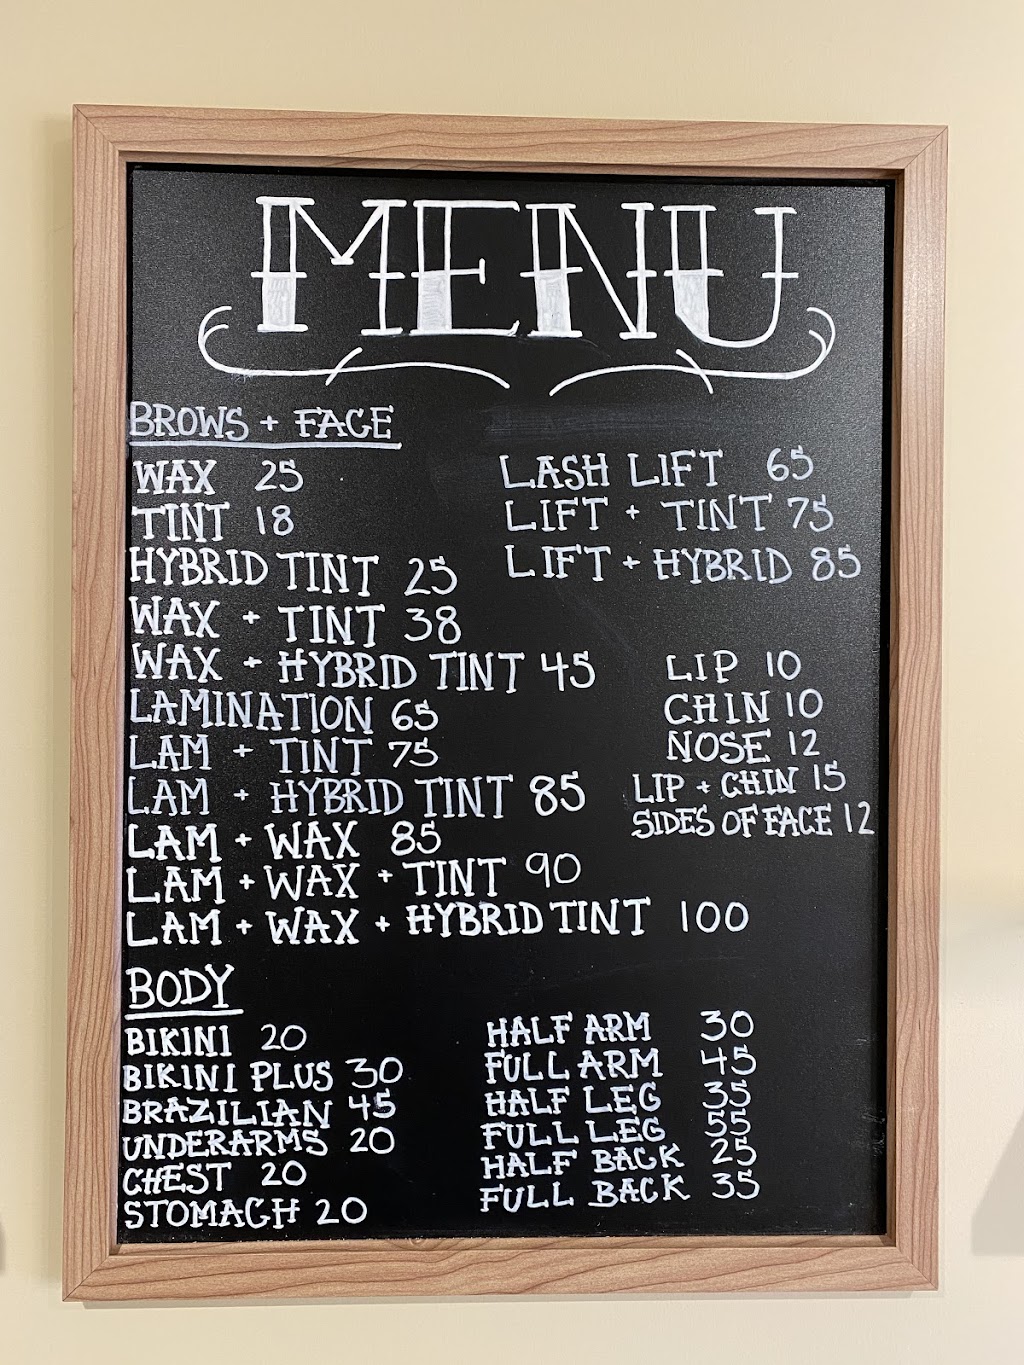 MENU
BROWS + FACE
WAX 25
TINT 18
HYBRID TINT 25
WAX + TINT 38
WAX + HYBRID TINT 45
LAMINATION 65
LAM + TINT 75
LAM + HYBRID TINT 85
LAM + WAX 85
LAM + WAX + TINT 90
LAM + WAX + HYBRID TINT 100
LASH LIFT 65
LIFT + TINT 75
LIFT + HYBRID 85
LIP 10
CHIN 10
NOSE 12
LIP + CHIN 15
SIDES OF FACE 12
BODY
BIKINI 20
BIKINI PLUS 30
BRAZILIAN 45
UNDERARMS 20
CHEST 20
STOMACH 20
HALF ARM 30
FULL ARM 45
HALF LEG 35
FULL LEG 55
HALF BACK 25
FULL BACK 35